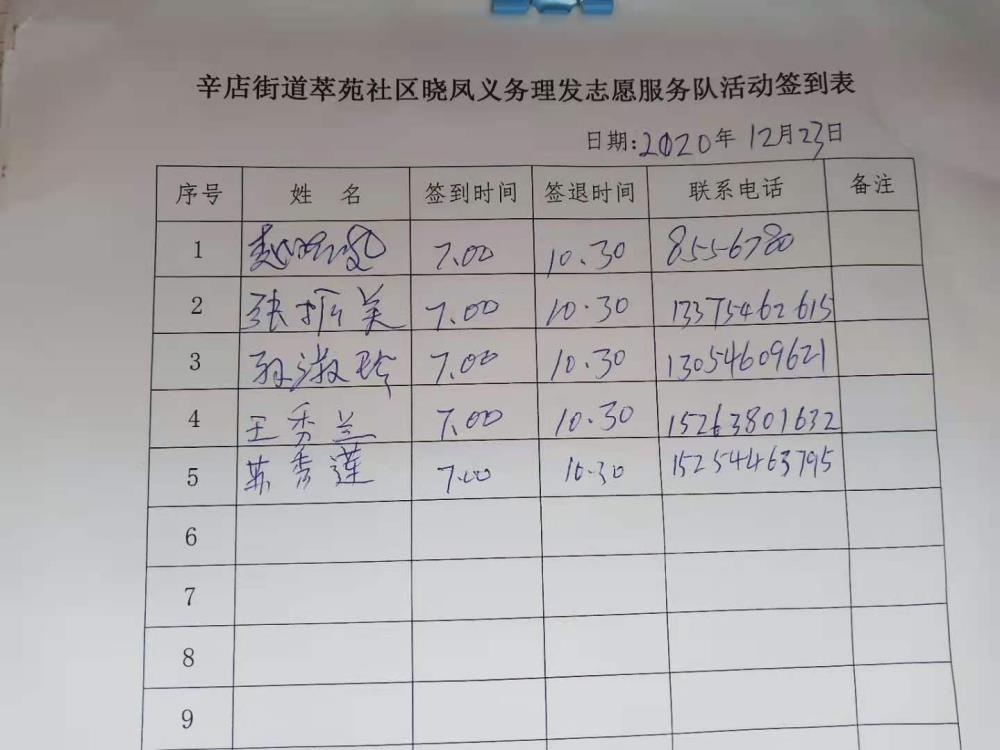 辛店街道萃苑社区晓凤义务理发志愿服务队活动签到表
日期:2020年12月23日
序号 姓 名 签到时间 签退时间 联系电话 备注
1 赵晓凤 7.00 10.30 8556780
2 张振美 7.00 10.30 13375462615
3 孙淑玲 7.00 10.30 13054609621
4 王秀兰 7.00 10.30 15263801632
5 苏秀莲 7.00 10.30 15254463795
6
7
8
9